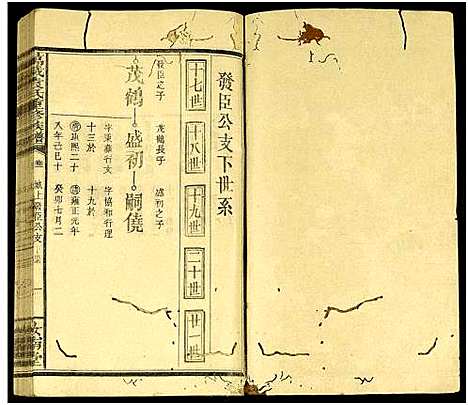 發臣公支下世系
十七世
十八世
十九世
二十世
廿一世
茂鶴 盛初 嗣僥
發臣之子
茂鶴長子
字秉彝行文
十三於
康熙二十
八年己巳十
盛初之子
字協和行理
十九於
雍正元年
癸卯七月二
氏重修族譜
城上發臣公支